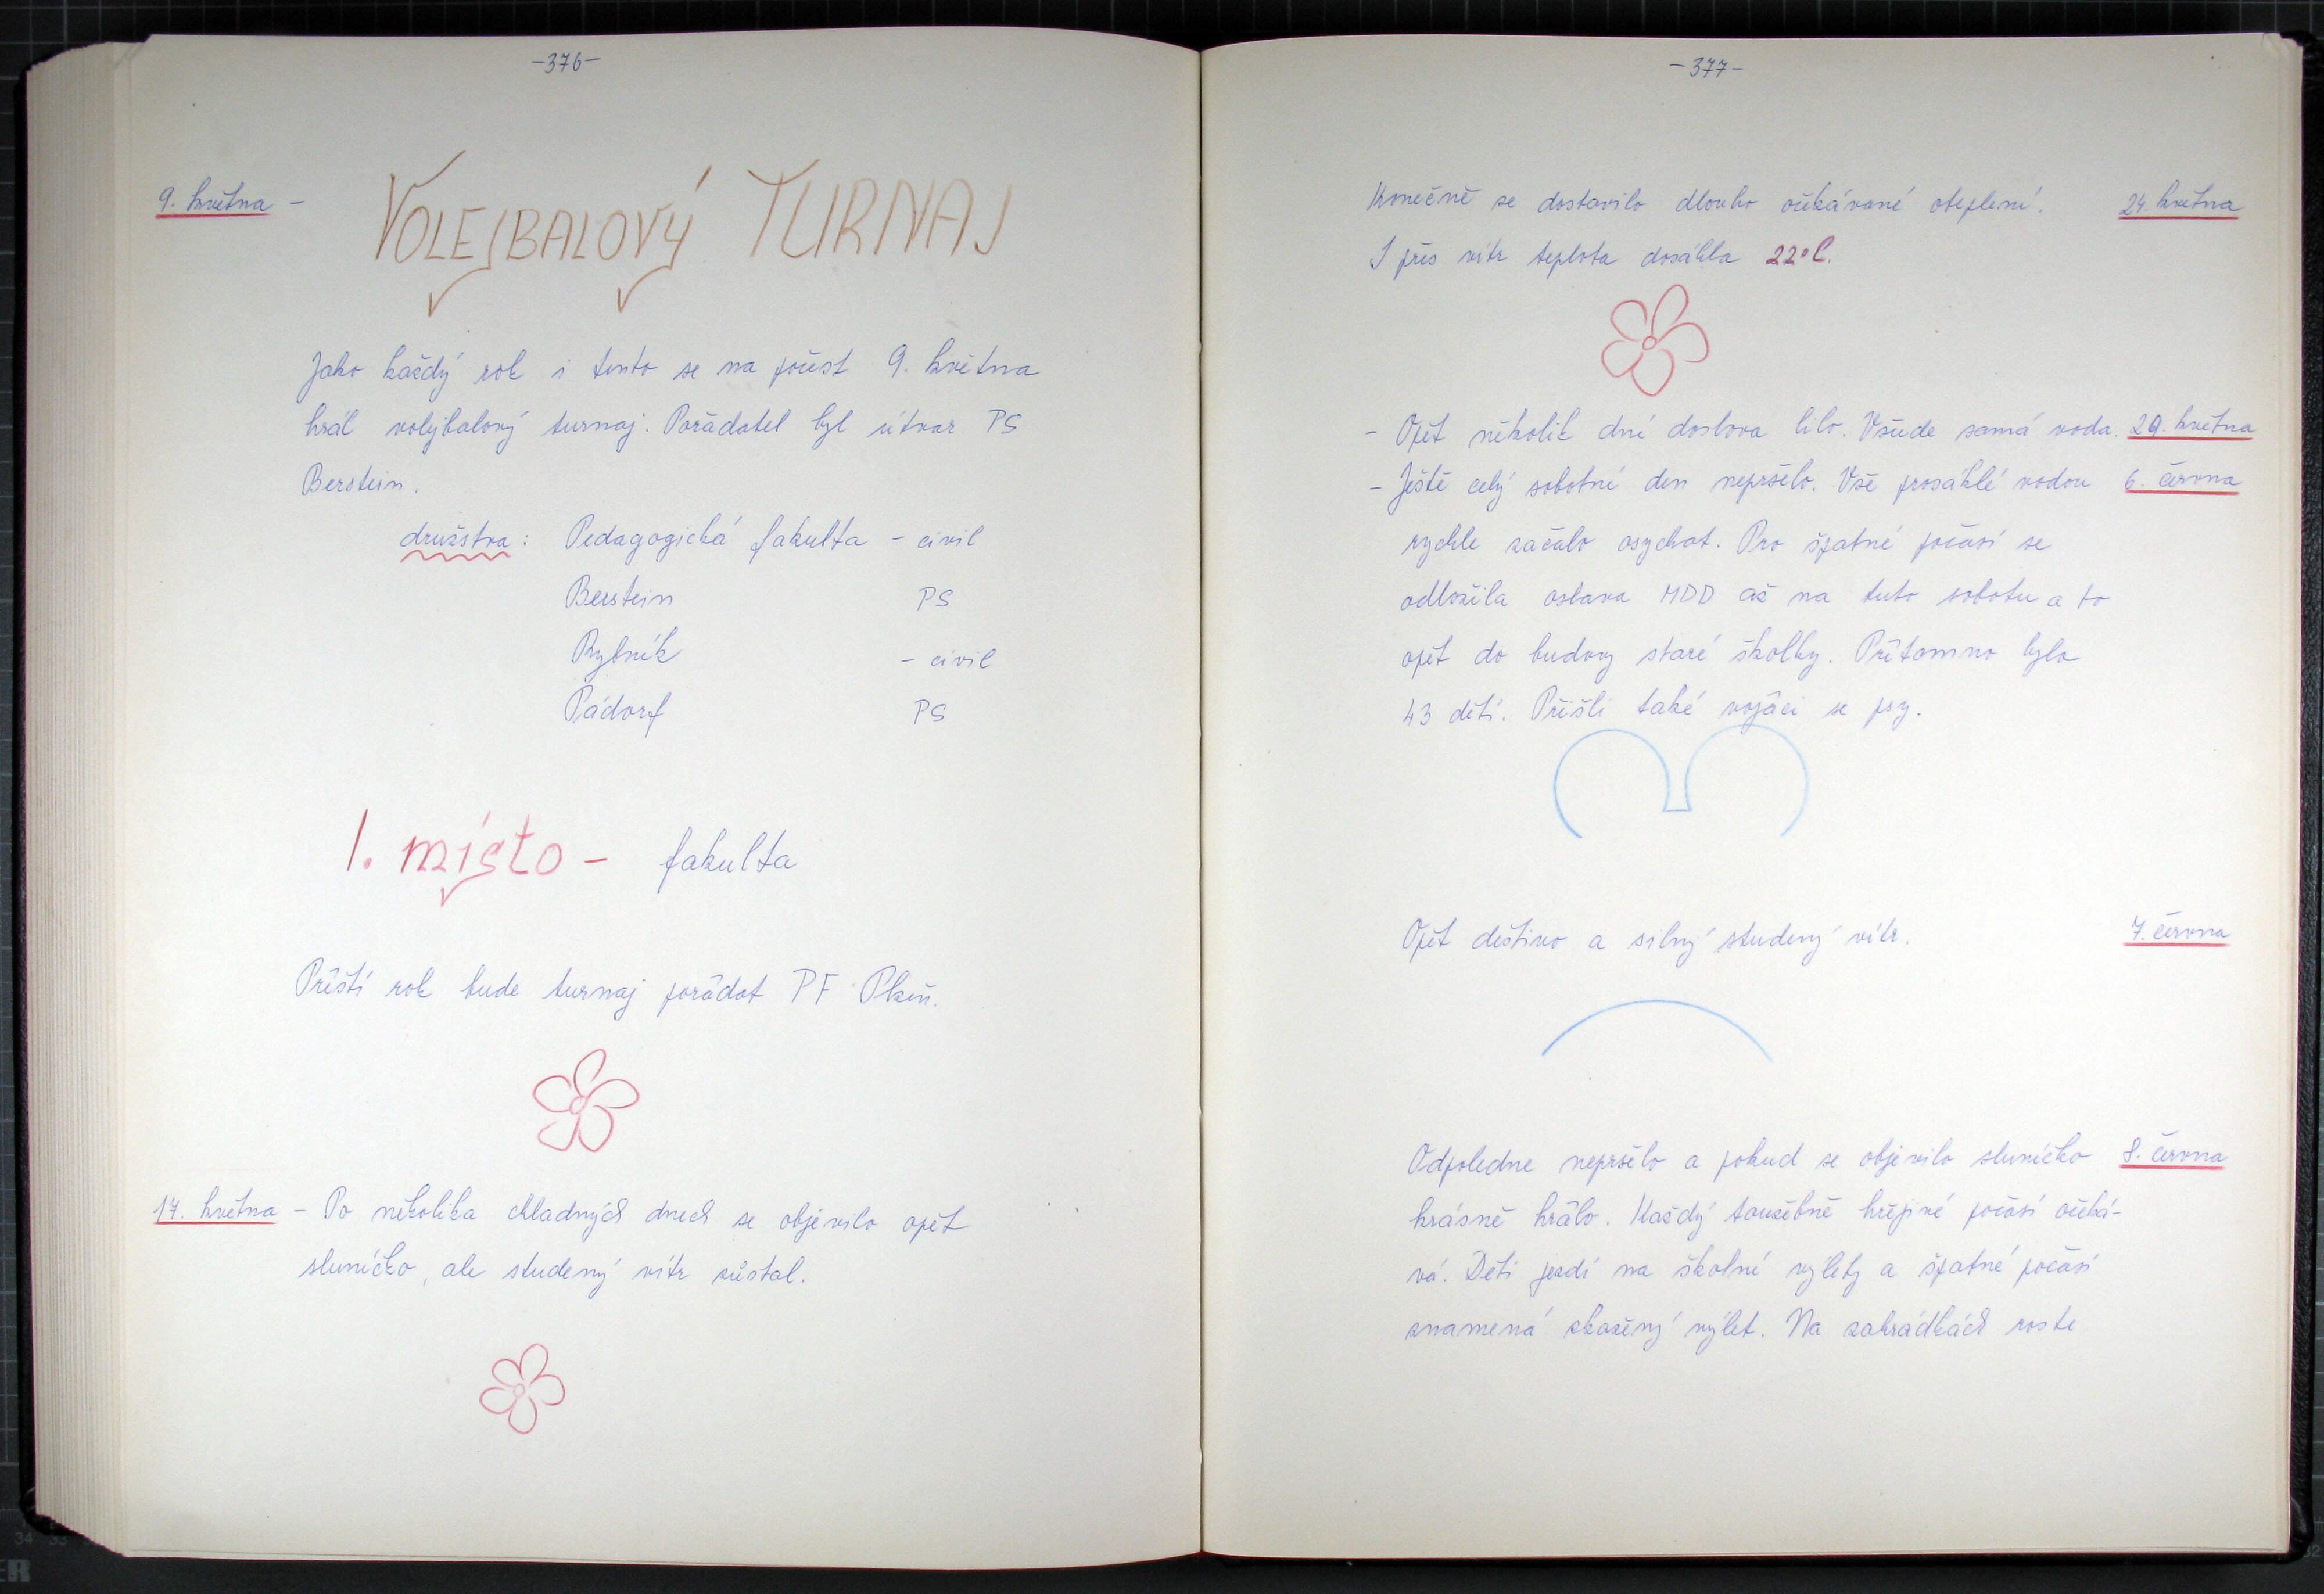 -376-
9. května -
VOLEJBALOVÝ TURNAJ
Jako každý rok i tento se na počest 9. května
hrál volejbalový turnaj. Pořádatel byl útvar PS
Berstein.
družstva: Pedagogická fakulta - civil
Berstein PS
Rybník - civil
Pádorf PS
1. místo - fakulta
Příští rok bude turnaj pořádat PF Plzeň.
17. května - Po několika chladných dnech se objevilo opět
sluníčko, ale studený vítr zůstal.
-377-
Konečně se dostavilo dlouho očekávané oteplení. 24. května
I přes vítr teplota dosáhla 22°C.
- Opět několik dní doslova lilo. Všude samá voda. 29. května
- Ještě celý sobotní den nepršelo. Vše prosáklé vodou 6. června
rychle začalo osychat. Pro špatné počasí se
odložila oslava MDD až na tuto sobotu a to
opět do budovy staré školky. Přítomno bylo
43 dětí. Přišli také vojáci se psy.
Opět deštivo a silný studený vítr. 7. června
Odpoledne nepršelo a pokud se objevilo sluníčko 8. června
krásně hřálo. Každý toužebně hřejivé počasí očeká-
vá. Děti jezdí na školní výlety a špatné počasí
znamená zkažený výlet. Na zahrádkách roste